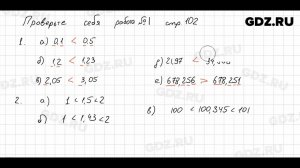 GDZ.RU
Проверьте себя работа №1 стр 102
1. а) 0,1 < 0,5
б) 1,2 < 1,23
в) 2,05 < 3,05
г) 21,97 < 34,
е) 678,256 > 678,251
2. а) 1 < 1,5 < 2
б) 1 < 1,43 < 2
в) 100 < 100,345 < 101
GDZ.RU